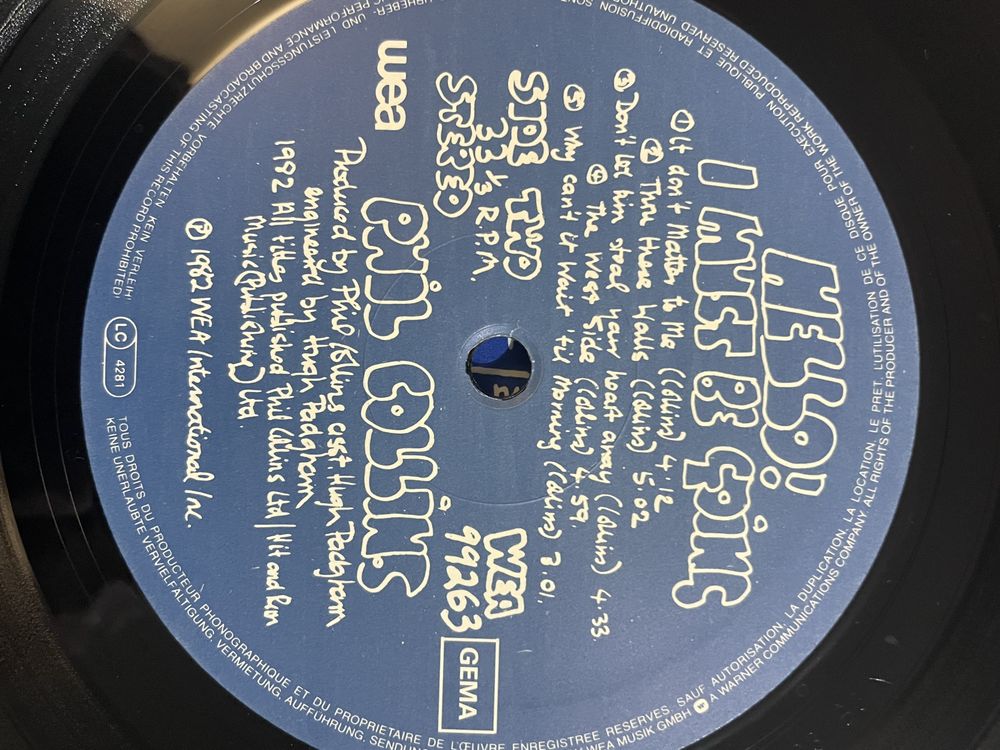 HELLO!
I MUST BE GOING
① It don't Matter to Me (Collins) 4.12
② Thru these Walls (Collins) 5.02
③ Don't let him steal your heart away (Collins) 4.33
④ The West Side (Collins) 4.59
⑤ Why can't it Wait 'til Morning (Collins) 3.01.
SIDE TWO
33 1/3 R.P.M.
STEREO
WEA
99263
GEMA
wea
PHIL COLLINS
Produced by Phil Collins asst. Hugh Padgham
engineered by Hugh Padgham
1982 All titles published Phil Collins Ltd / Hit and Run
Music (Publishing) Ltd.
Ⓟ 1982 WEA International Inc.
LC 4281
URHEBER- UND LEISTUNGSSCHUTZRECHTE VORBEHALTEN. KEIN VERLEIH! KEINE UNERLAUBTE VERVIELFÄLTIGUNG, VERMIETUNG, AUFFÜHRUNG,
WEA MUSIK GMBH A WARNER COMMUNICATIONS COMPANY ALL RIGHTS OF THE PRODUCER AND OF THE OWNER OF THE WORK REPRODUCED RESERVED
PERFORMANCE AND BROADCASTING OF THIS RECORD PROHIBITED!
TOUS DROITS DU PRODUCTEUR PHONOGRAPHIQUE ET DU PROPRIETAIRE DE L'ŒUVRE ENREGISTREE RESERVES. SAUF AUTORISATION, LA DUPLICATION, LA LOCATION, LE PRET, L'UTILISATION DE CE DISQUE POUR EXECUTION PUBLIQUE ET RADIODIFFUSION